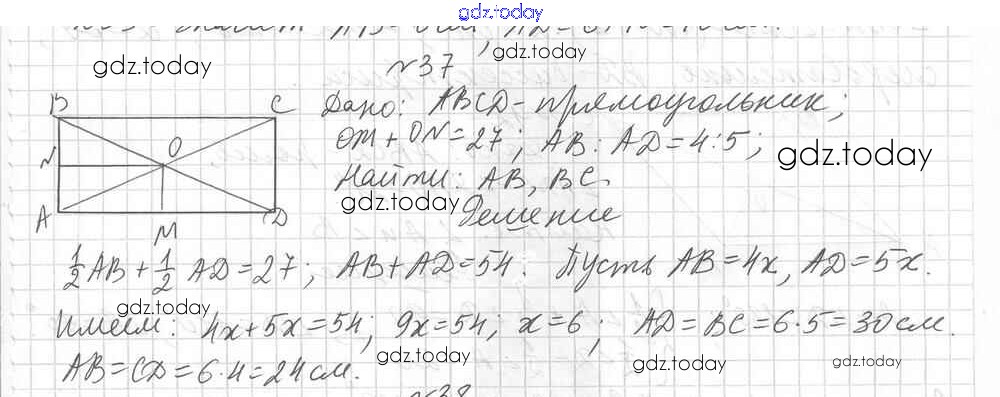 gdz.today
gdz.today
gdz.today
№37
B C Дано: ABCD - прямоугольник;
OM + ON = 27; AB : AD = 4:5;
N O
gdz.today
Найти: AB, BC.
A M D
gdz.today
Решение
1/2 AB + 1/2 AD = 27; AB + AD = 54. Пусть AB = 4x, AD = 5x.
gdz.today
Имеем: 4x + 5x = 54; 9x = 54; x = 6; AD = BC = 6·5 = 30 см.
gdz.today gdz.today gdz.today
AB = CD = 6·4 = 24 см.
№38